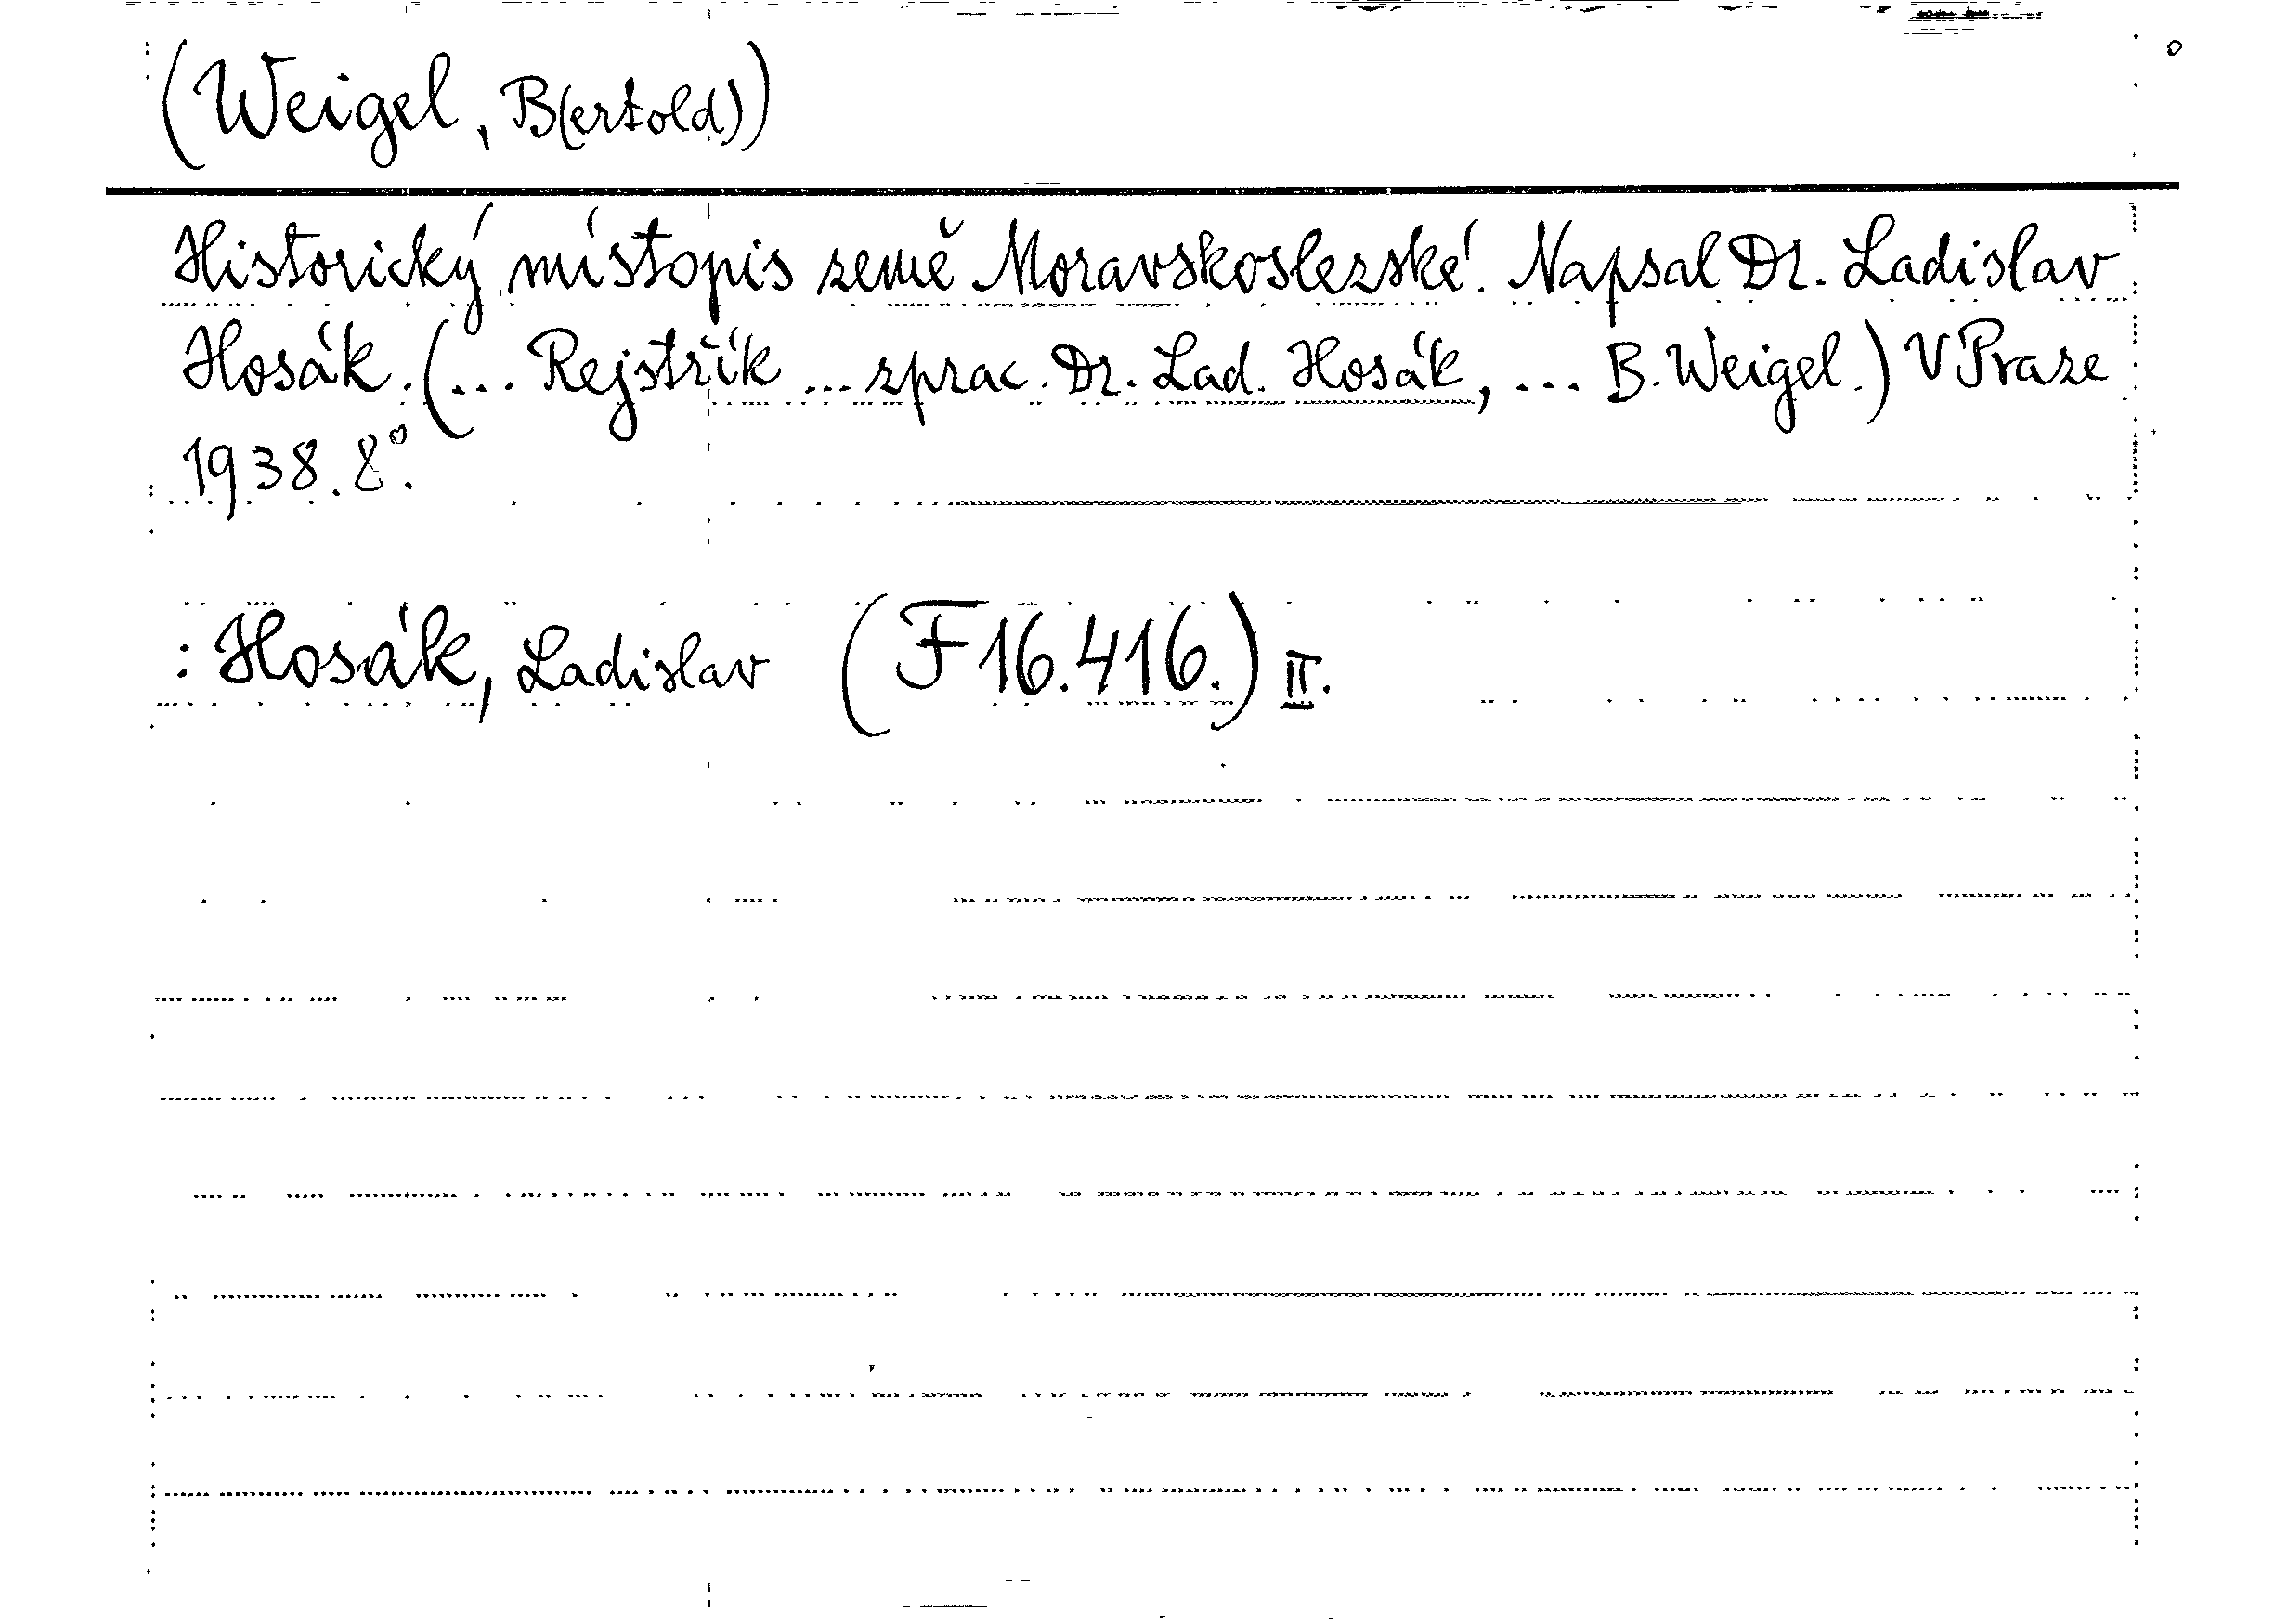 (Weigel, B(ertold))
Historický místopis země Moravskoslezské. Napsal Dr. Ladislav
Hosák. (... Rejstřík ... zprac. Dr. Lad. Hosák, ... B. Weigel.) V Praze
1938. 8°.
: Hosák, Ladislav (F 16.416.) II.